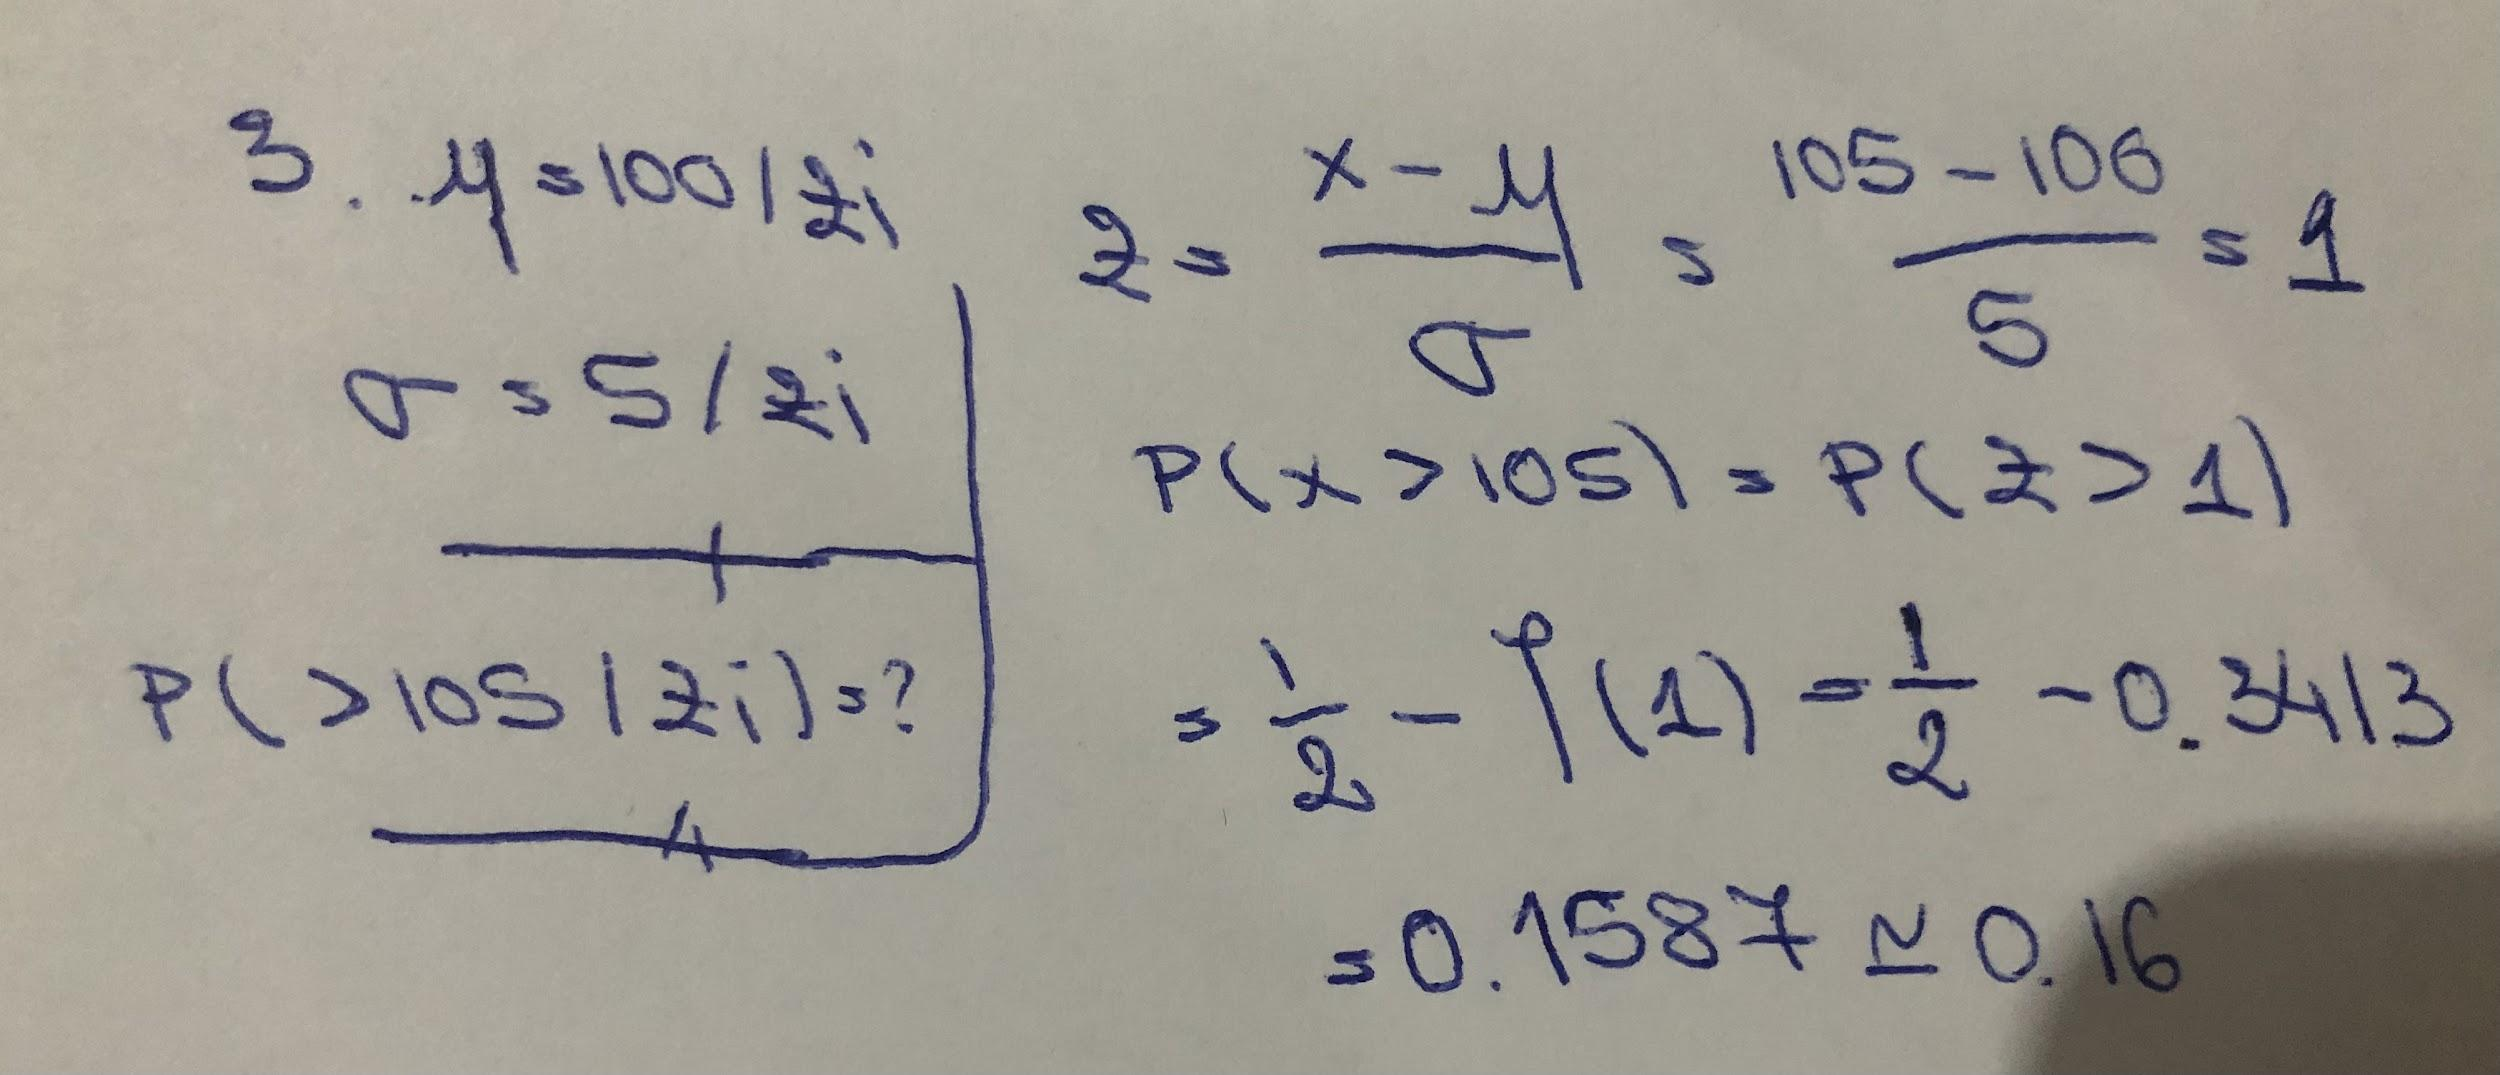 3. μ = 100 / zi
σ = 5 / zi
P( > 105 / zi) = ?
z = x - μ / σ = 105 - 100 / 5 = 1
P(x > 105) = P(z > 1)
= 1/2 - φ(1) = 1/2 - 0.3413
= 0.1587 ≃ 0.16